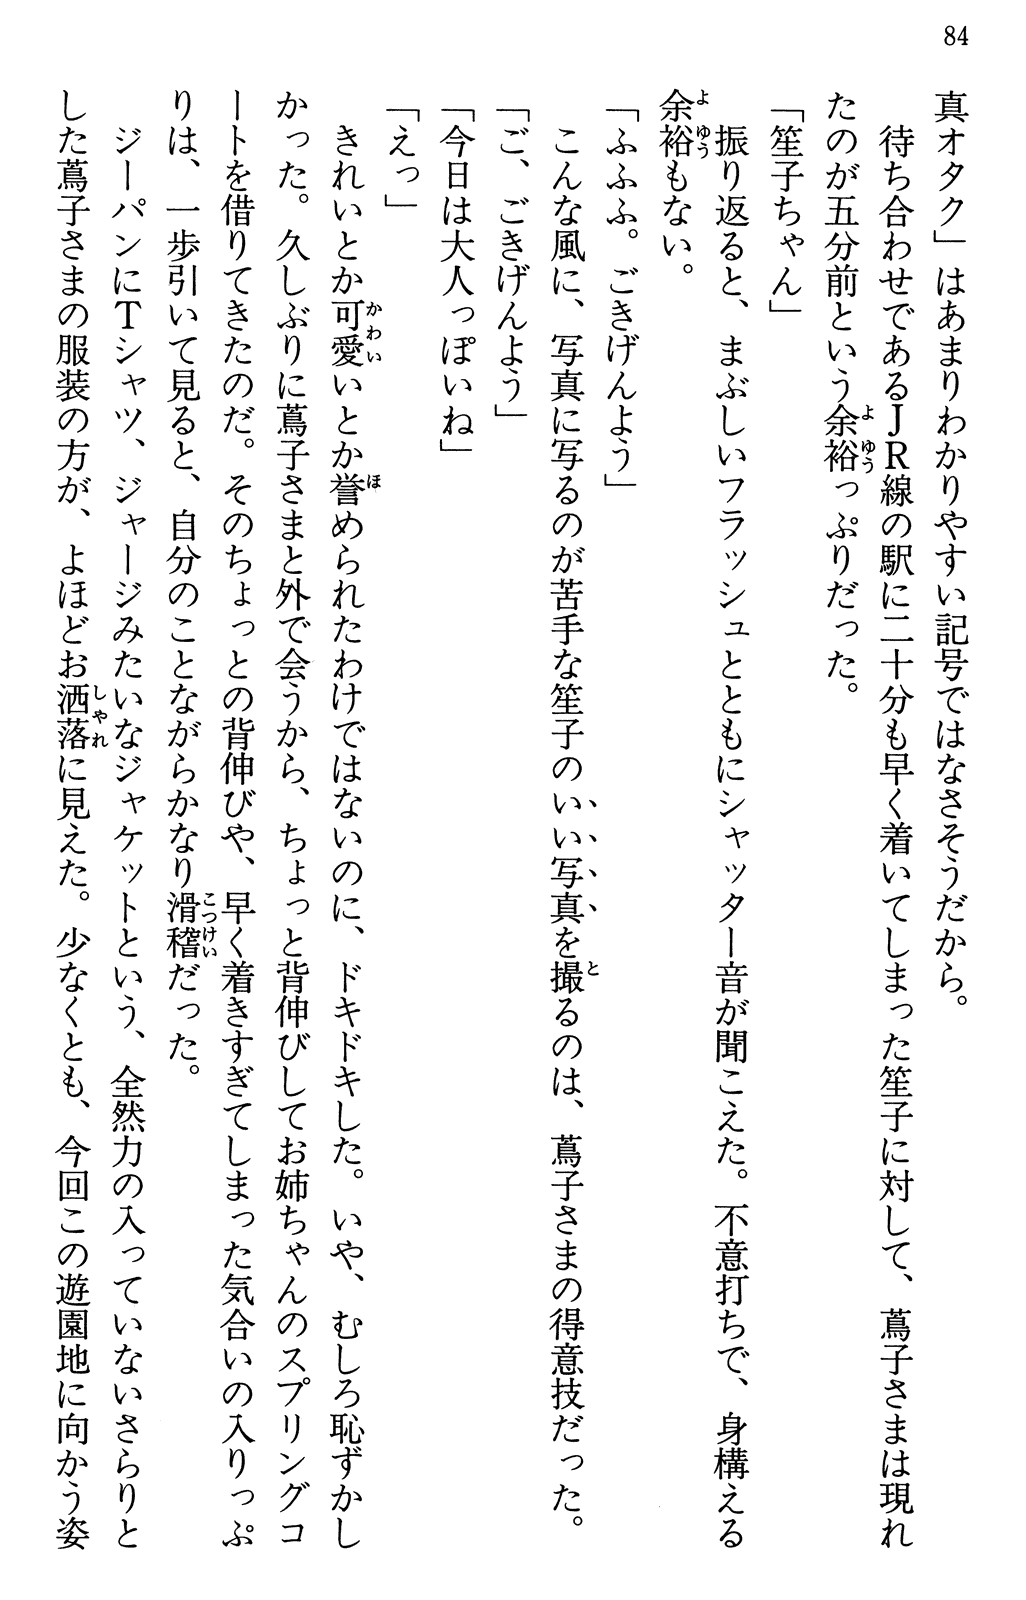 84
真オタク」はあまりわかりやすい記号ではなさそうだから。
待ち合わせであるJR線の駅に二十分も早く着いてしまった笙子に対して、蔦子さまは現れ
たのが五分前という余裕っぷりだった。
「笙子ちゃん」
振り返ると、まぶしいフラッシュとともにシャッター音が聞こえた。不意打ちで、身構える
余裕もない。
「ふふふ。ごきげんよう」
こんな風に、写真に写るのが苦手な笙子のいい写真を撮るのは、蔦子さまの得意技だった。
「ご、ごきげんよう」
「今日は大人っぽいね」
「えっ」
きれいとか可愛いとか誉められたわけではないのに、ドキドキした。いや、むしろ恥ずかし
かった。久しぶりに蔦子さまと外で会うから、ちょっと背伸びしてお姉ちゃんのスプリングコ
ートを借りてきたのだ。そのちょっとの背伸びや、早く着きすぎてしまった気合いの入りっぷ
りは、一歩引いて見ると、自分のことながらかなり滑稽だった。
ジーパンにTシャツ、ジャージみたいなジャケットという、全然力の入っていないさらりと
した蔦子さまの服装の方が、よほどお洒落に見えた。少なくとも、今回この遊園地に向かう姿